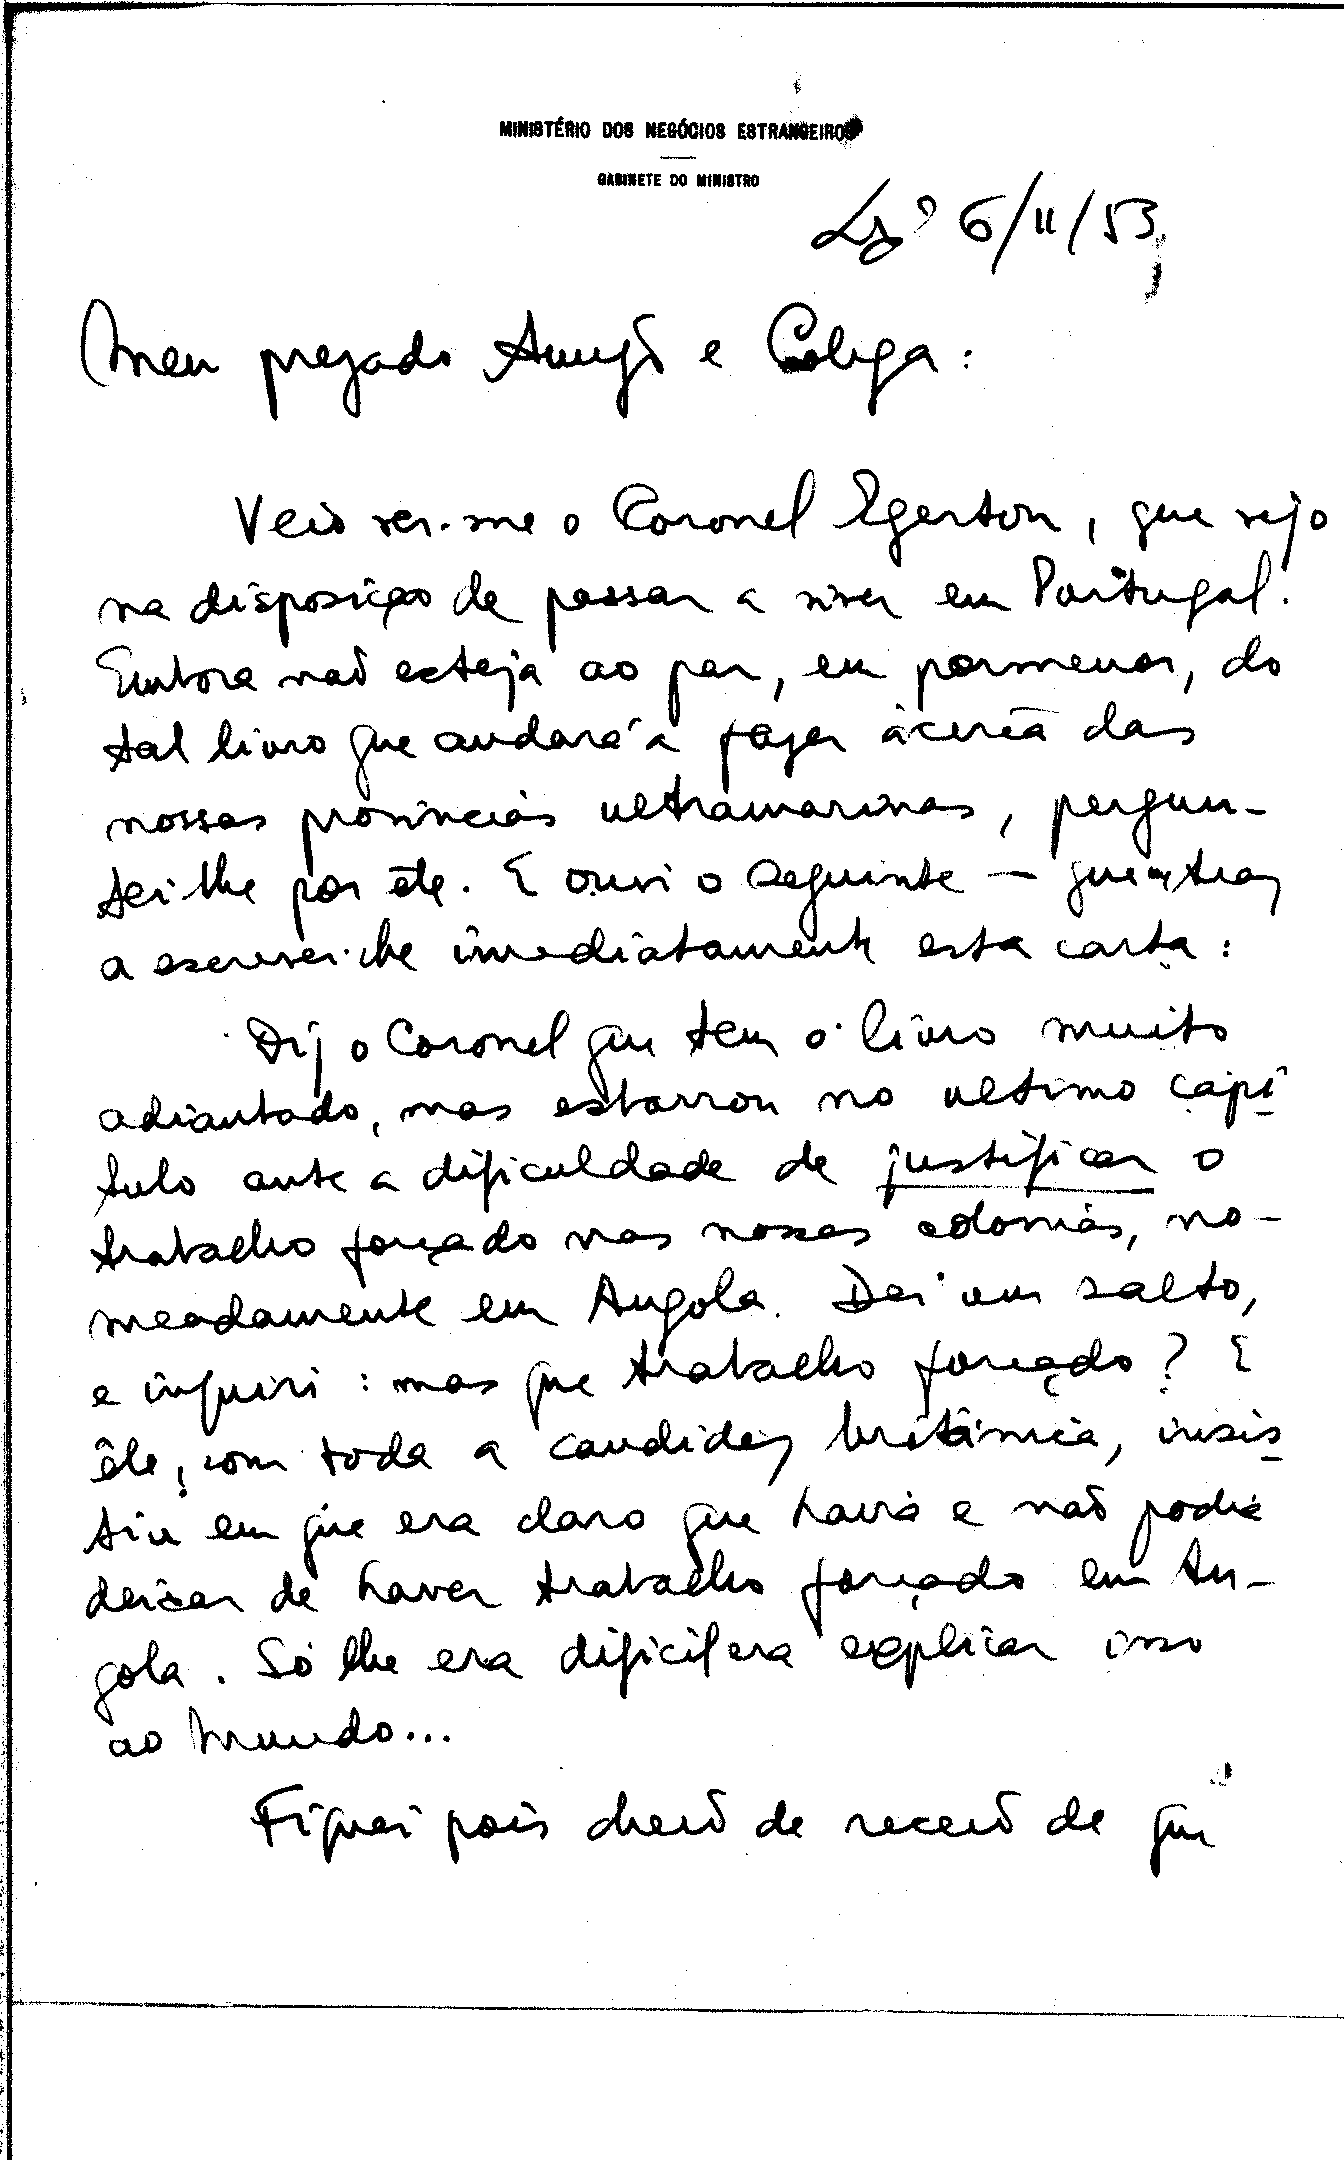 MINISTÉRIO DOS NEGÓCIOS ESTRANGEIROS
GABINETE DO MINISTRO
Lxª 6/11/53
Meu prezado Amigo e Colega:
Veio ver-me o Coronel Egerton, que vejo
na disposição de passar a viver em Portugal.
Embora não esteja ao par, em pormenor, do
tal livro que andará a fazer àcerca das
nossas provincias ultramarinas, pergun-
tei-lhe por êle. E ouvi o seguinte —
a escrever-lhe imediatamente esta carta:
Diz o Coronel que tem o livro muito
adiantado, mas estarrou no ultimo capi
tulo ante a dificuldade de justificar o
trabalho forçado nas nossas colonias, no-
meadamente em Angola. Dei um salto,
e inquiri: mas que trabalho forçado? E
êle, com toda a candidez britânica, insis
tiu em que era claro que havia e não podia
deixar de haver trabalho forçado em An-
gola. Só lhe era dificil era explicar isso
ao Mundo...
Fiquei pois cheio de receio de que